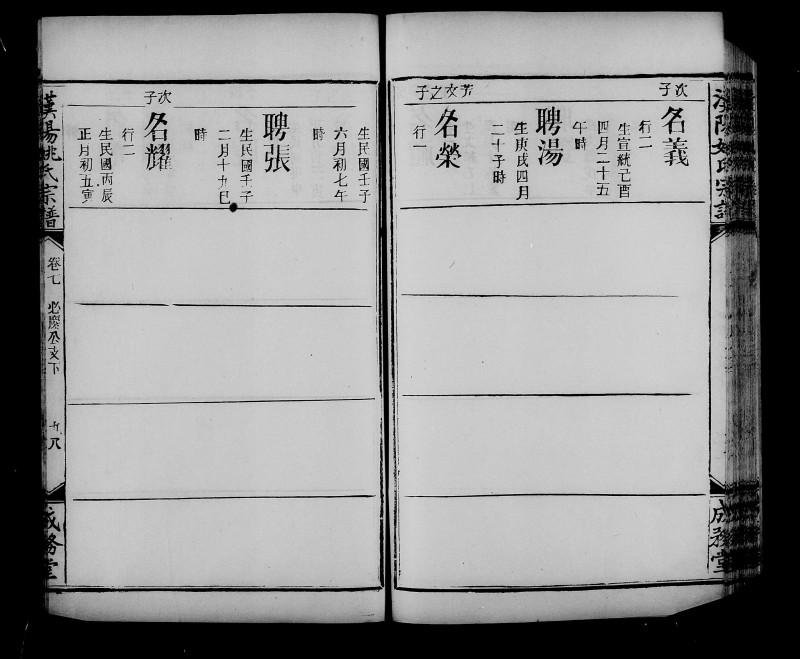 漢陽姚氏宗譜
成務堂
次子
名義
行二
生宣統己酉
四月二十五
午時
聘湯
生庚戌四月
二十子時
芳文之子
名榮
行一
生民國壬子
六月初七午
時
聘張
生民國壬子
二月十九巳
時
次子
名耀
行二
生民國丙辰
正月初五寅
漢陽姚氏宗譜
卷七
必慶公支下
成務堂